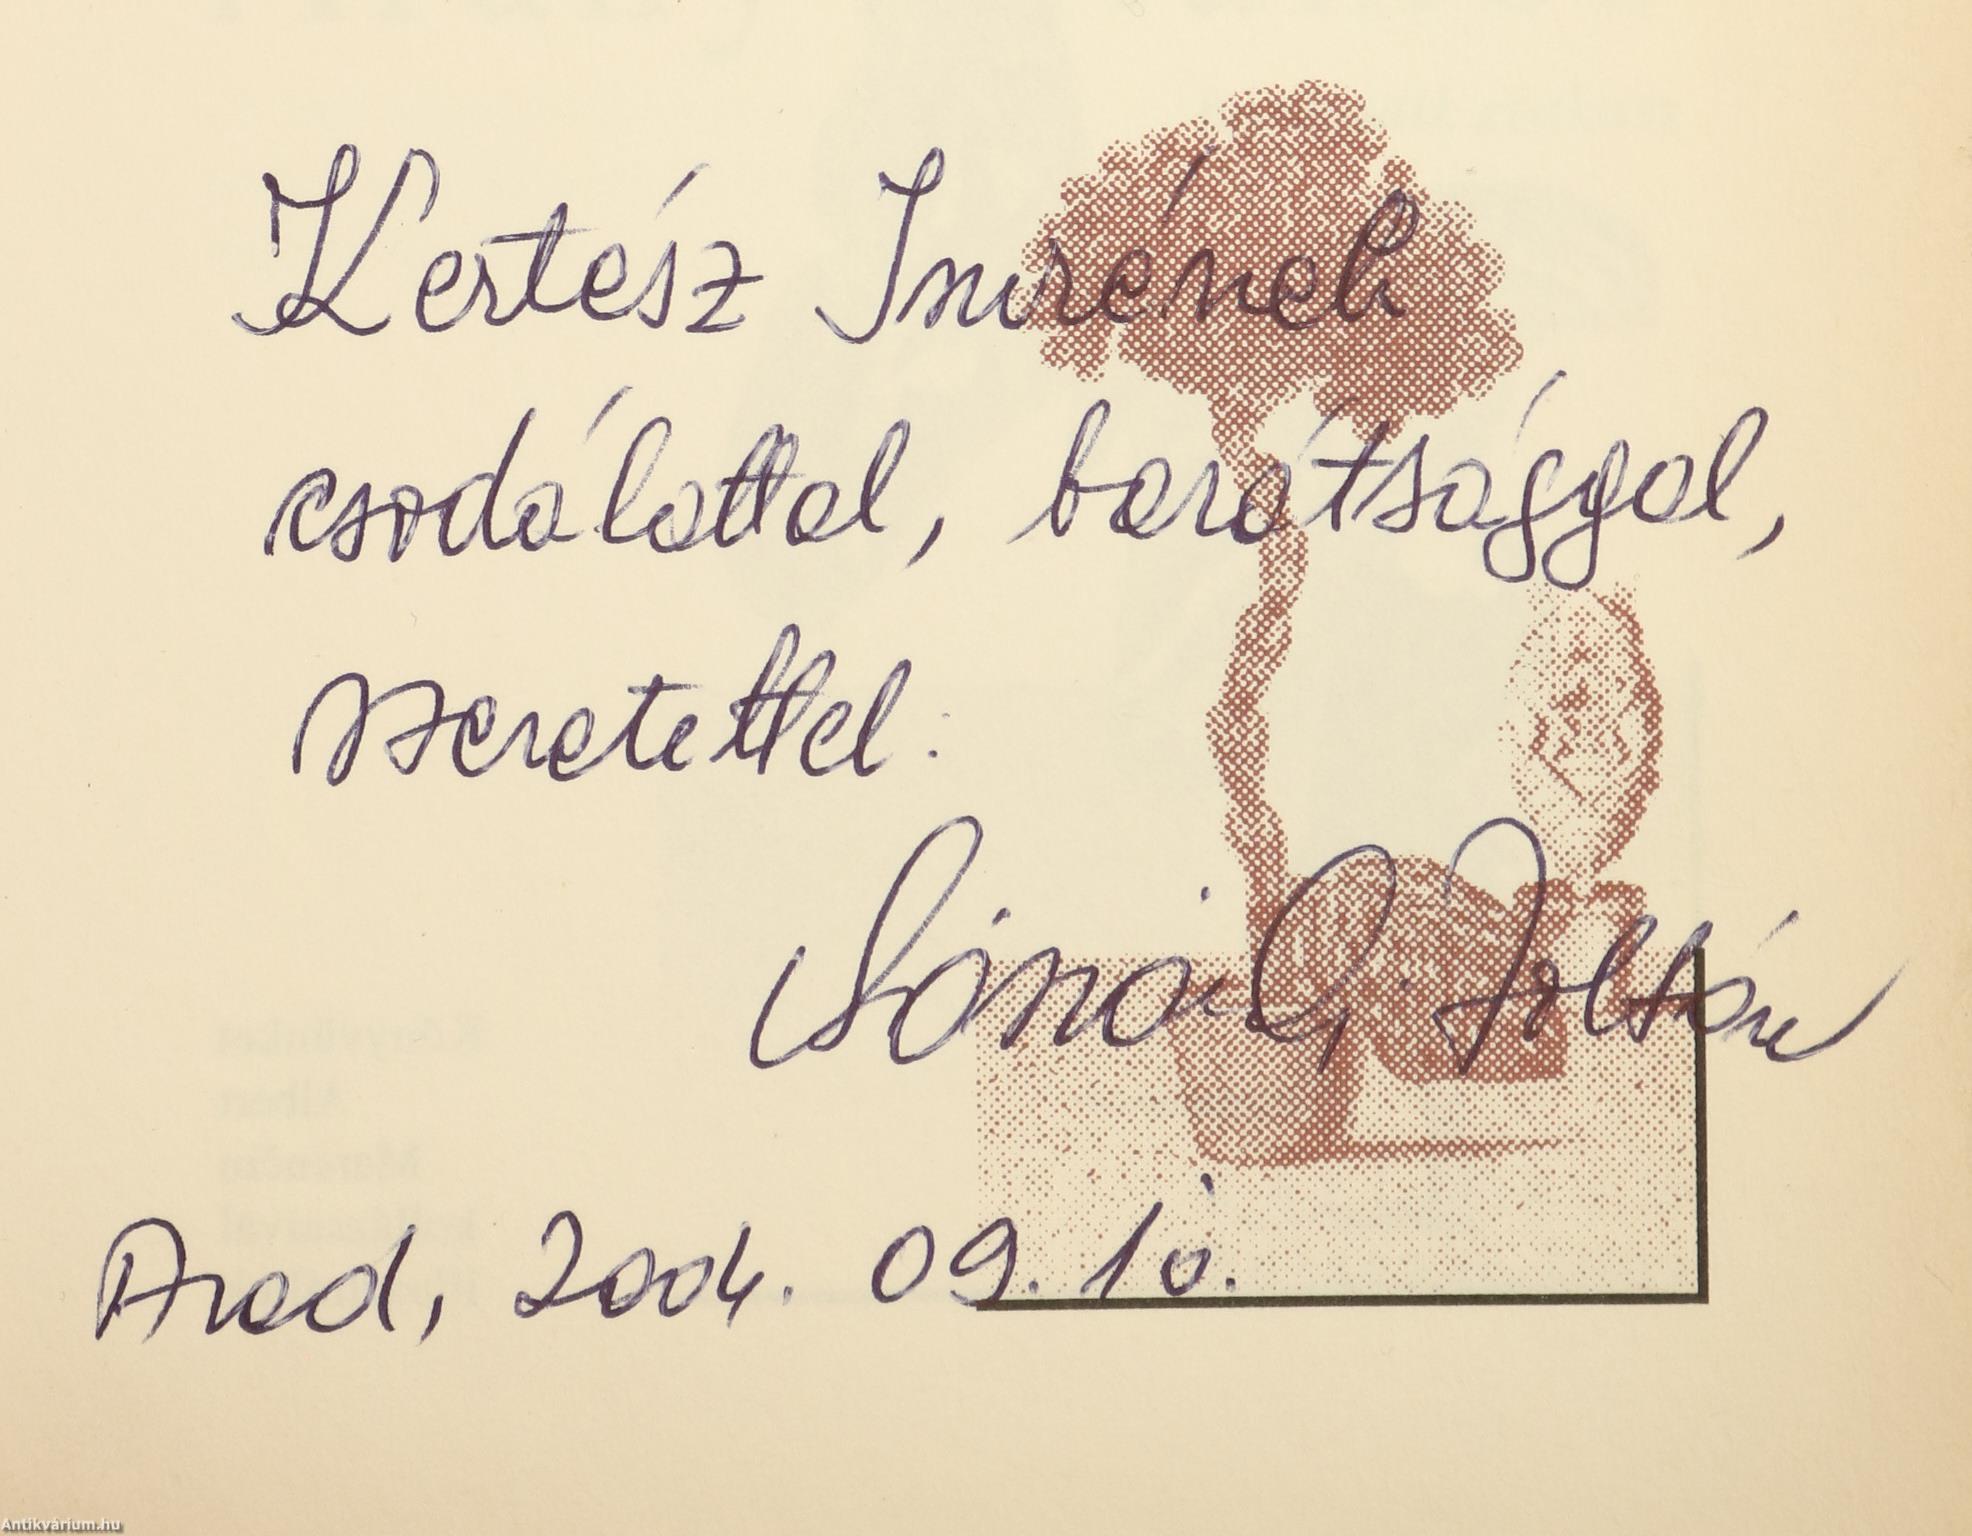 Kertész Imrének
csodálattal, barátsággal,
szeretettel:
Zoltán
Arad, 2004. 09. 10.
Antikvárium.hu